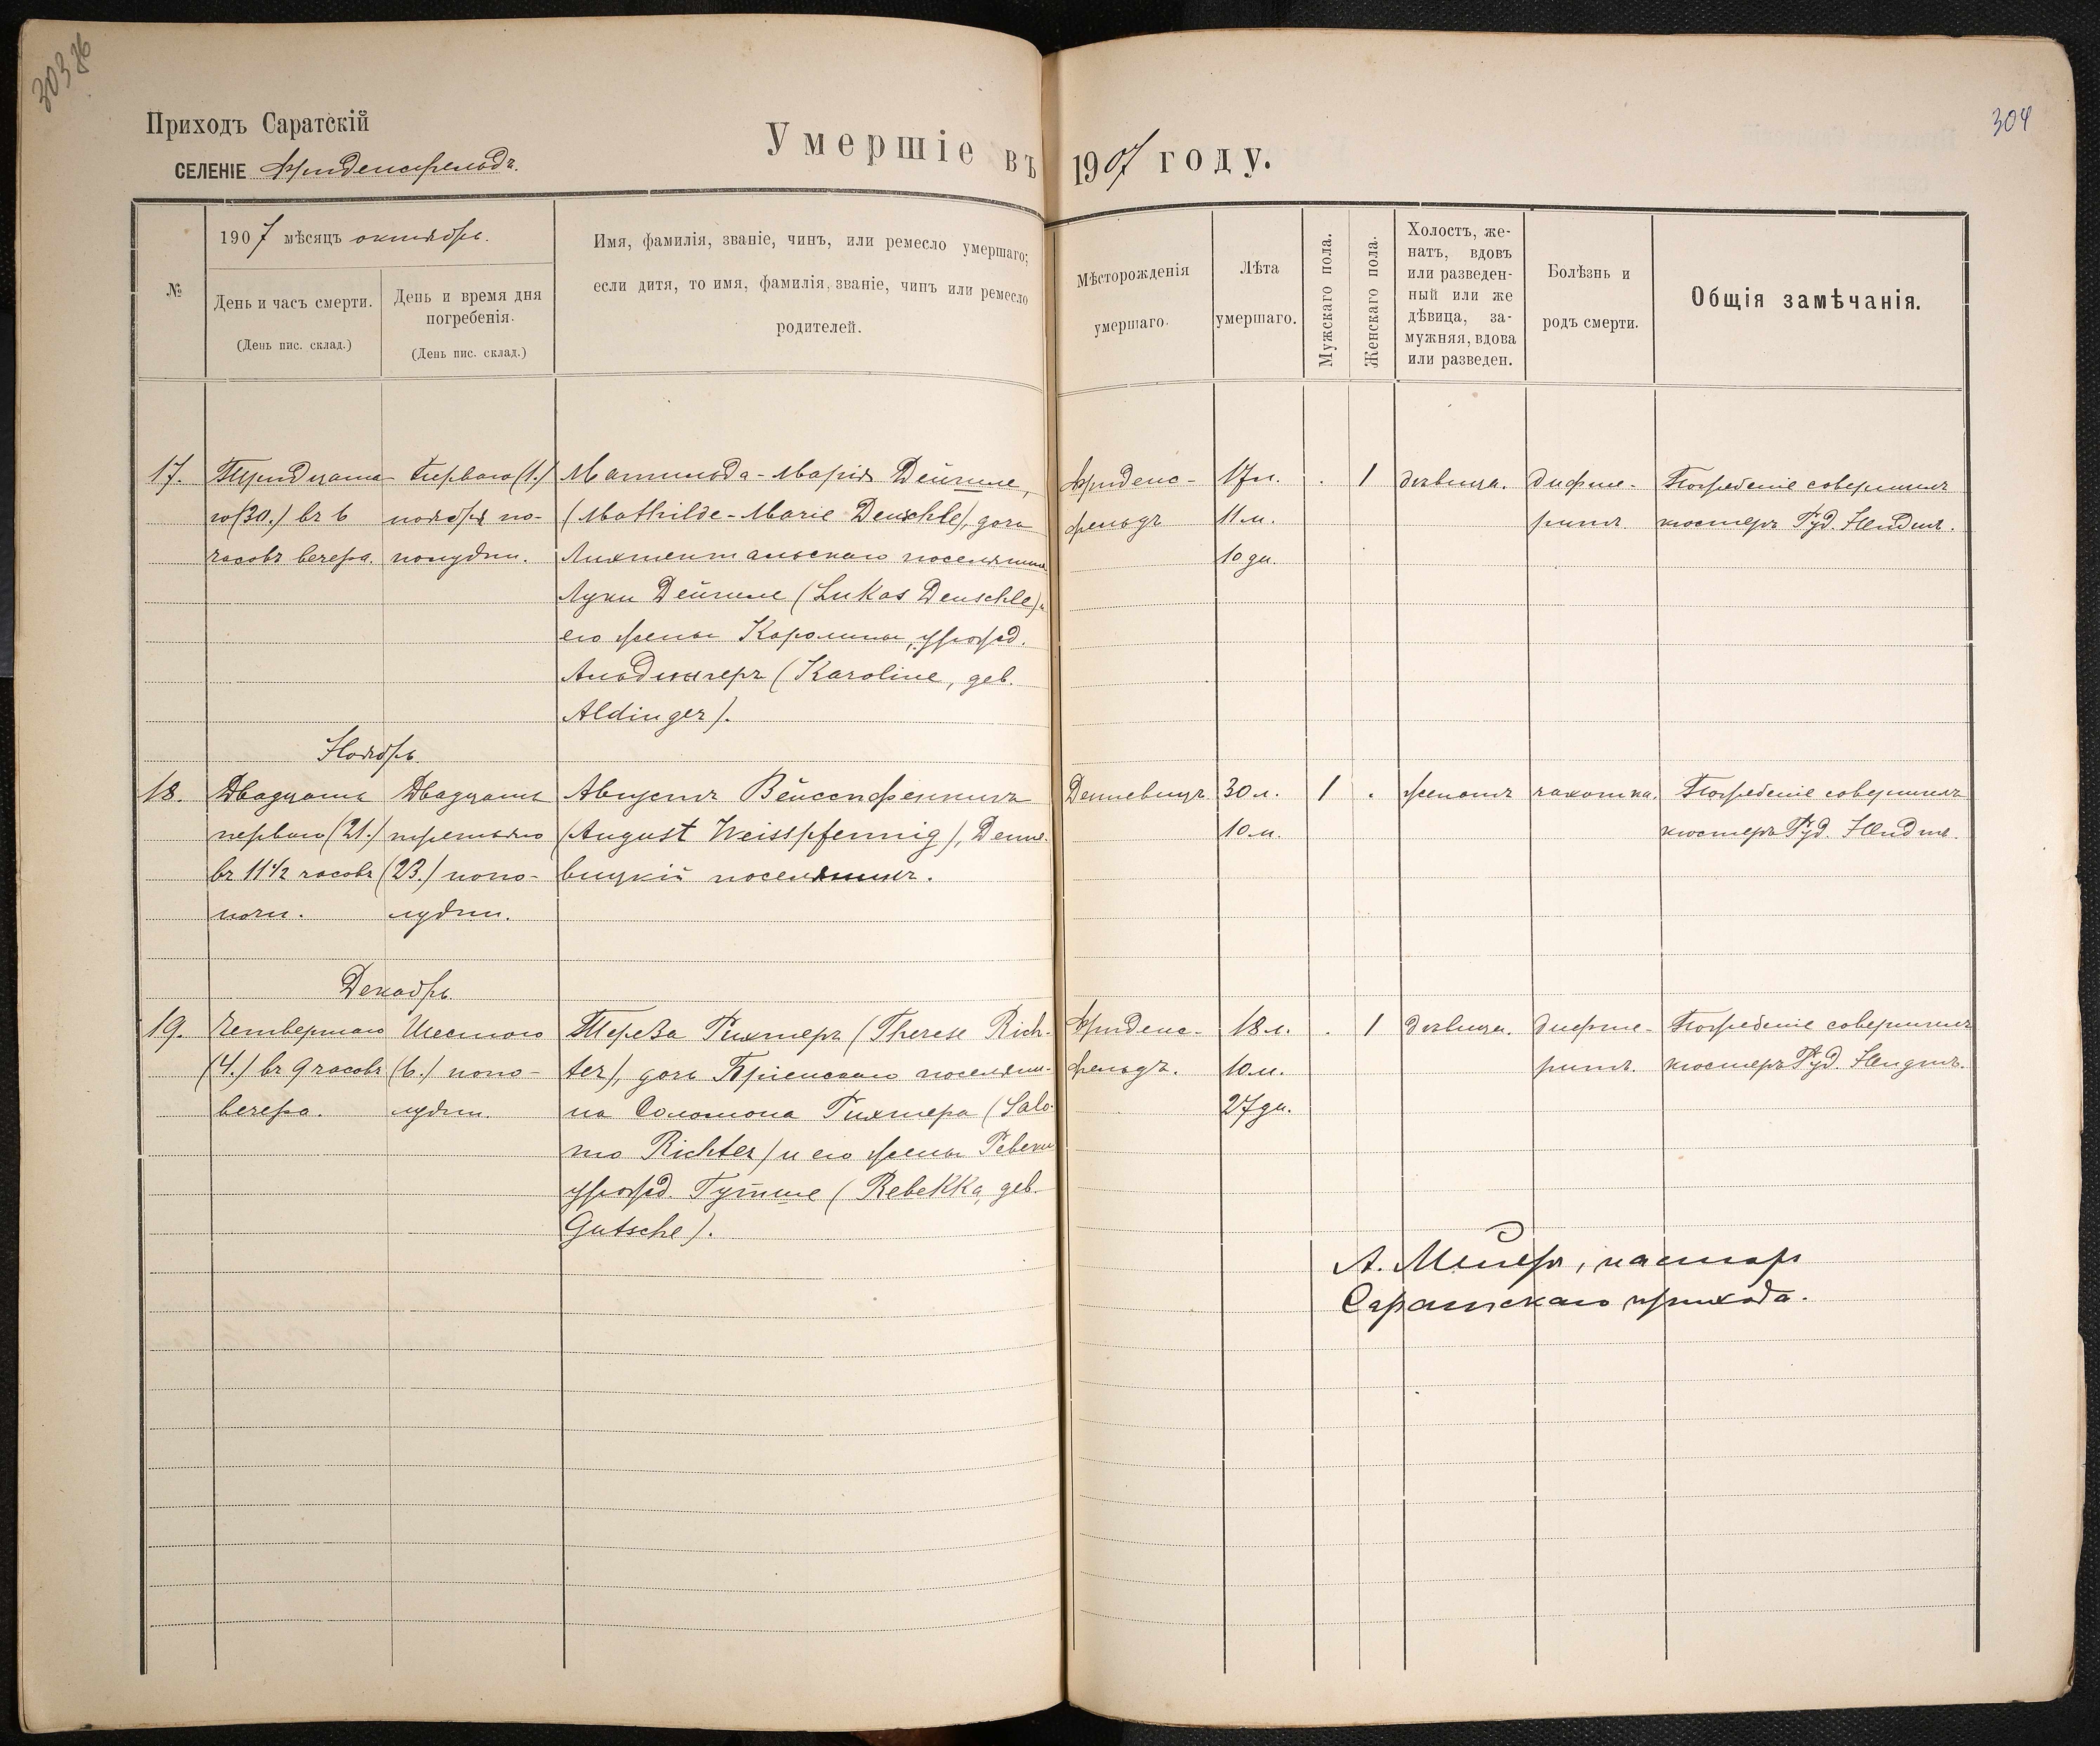 303 об
304
Приходъ Саратскій
СЕЛЕНІЕ Фриденсфельдъ.
Умершіе въ 1907 году.
№
1907 мѣсяцъ октябрь.
День и часъ смерти.
(День пис. склад.)
День и время дня
погребенія.
(День пис. склад.)
Имя, фамилія, званіе, чинъ, или ремесло умершаго;
если дитя, то имя, фамилія, званіе, чинъ или ремесло
родителей.
Мѣсторожденія
умершаго.
Лѣта
умершаго.
Мужскаго пола.
Женскаго пола.
Холостъ, же-
натъ, вдовъ
или разведен-
ный или же
дѣвица, за-
мужняя, вдова
или разведен.
Болѣзнь и
родъ смерти.
Общія замѣчанія.
17.
Тридцата-
го (30.) въ 6
часовъ вечера.
Перваго (1.)
ноября по-
полудни.
Матильда-Марія Дейшле,
(Mathilde-Marie Deuschle), дочь
Лихтентальскаго поселянина
Луки Дейшле (Lukas Deuschle) и
его жены Каролины, урожд.
Альдингеръ (Karoline, geb.
Aldinger).
Фриденс-
фельдъ
17 л.
11 м.
10 дн.
.
1
дѣвица.
дифте-
ритъ.
Погребеніе совершилъ
кюстеръ Руд. Нейдтъ.
Ноябрь.
18.
Двадцать
перваго (21.)
въ 11 1/2 часовъ
ночи.
Двадцать
третьяго
(23.) попо-
лудни.
Августъ Вейсспфеннигъ
(August Weisspfennig), Денне-
вицкій поселянинъ.
Денневицъ.
30 л.
10 м.
1
.
женатъ
чахотка.
Погребеніе совершилъ
кюстеръ Руд. Нейдтъ.
Декабрь.
19.
Четвертаго
(4.) въ 9 часовъ
вечера.
Шестого
(6.) попо-
лудни.
Тереза Рихтеръ (Therese Rich-
ter), дочь Бріенскаго поселяни-
на Соломона Рихтера (Salo-
mo Richter) и его жены Ревекки
урожд. Гутше (Rebekka, geb.
Gutsche).
Фриденс-
фельдъ.
18 л.
10 м.
27 дн.
.
1
дѣвица.
дифте-
ритъ.
Погребеніе совершилъ
кюстеръ Руд. Нейдтъ.
А. Мейеръ, пасторъ
Саратскаго прихода.